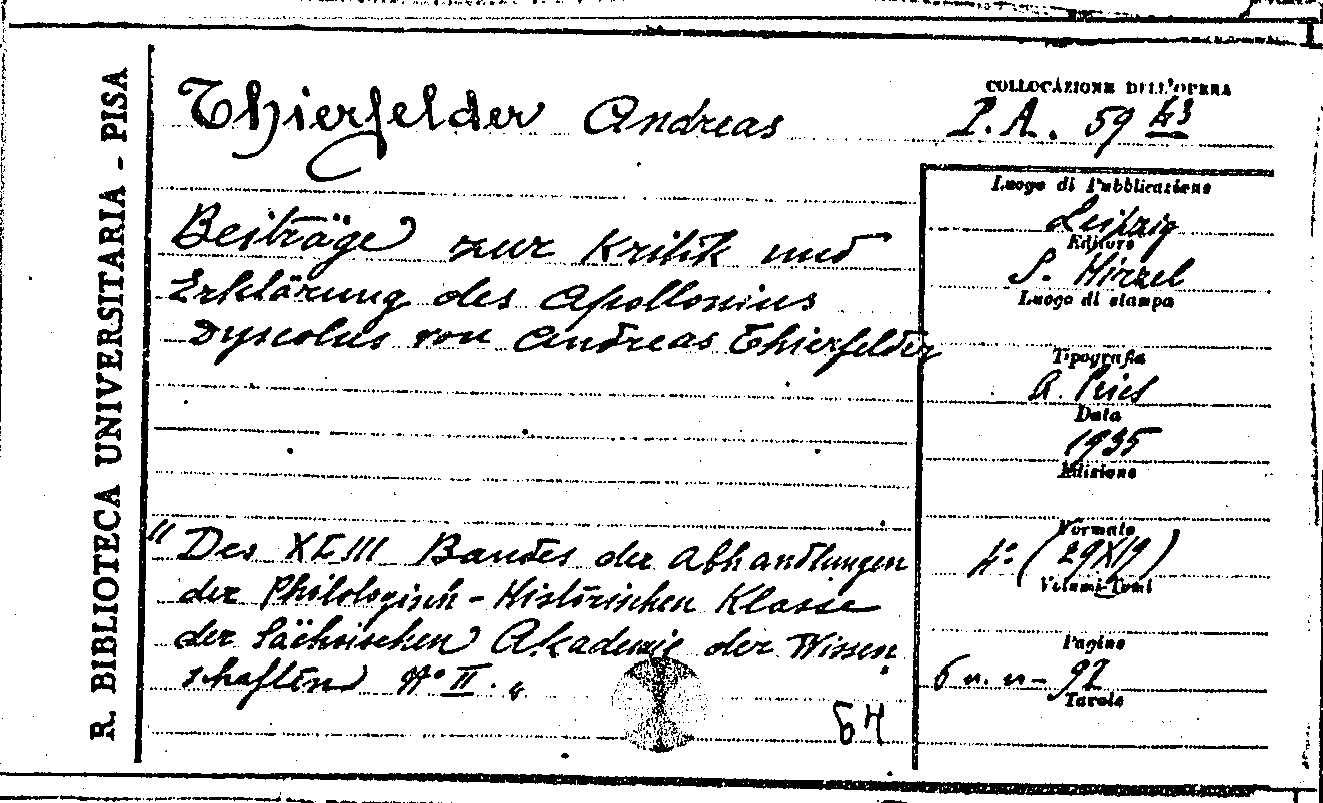 R. BIBLIOTECA UNIVERSITARIA - PISA
Thierfelder Andreas
COLLOCAZIONE DELL'OPERA
P.A. 59 43
Beiträge zur Kritik und
Erklärung des Apollonius
Dyscolus von Andreas Thierfelder
"Des XLIII Bandes der Abhandlungen
der Philologisch-Historischen Klasse
der Sächsischen Akademie der Wissen
schaften N° II."
64
Luogo di Pubblicazione
Leipzig
Editore
S. Hirzel
Luogo di stampa
Tipografia
A. Pries
Data
1935
Edizione
Formato
4° (29X19)
Volumi-Tomi
Pagine
6 n. n - 92
Tavole